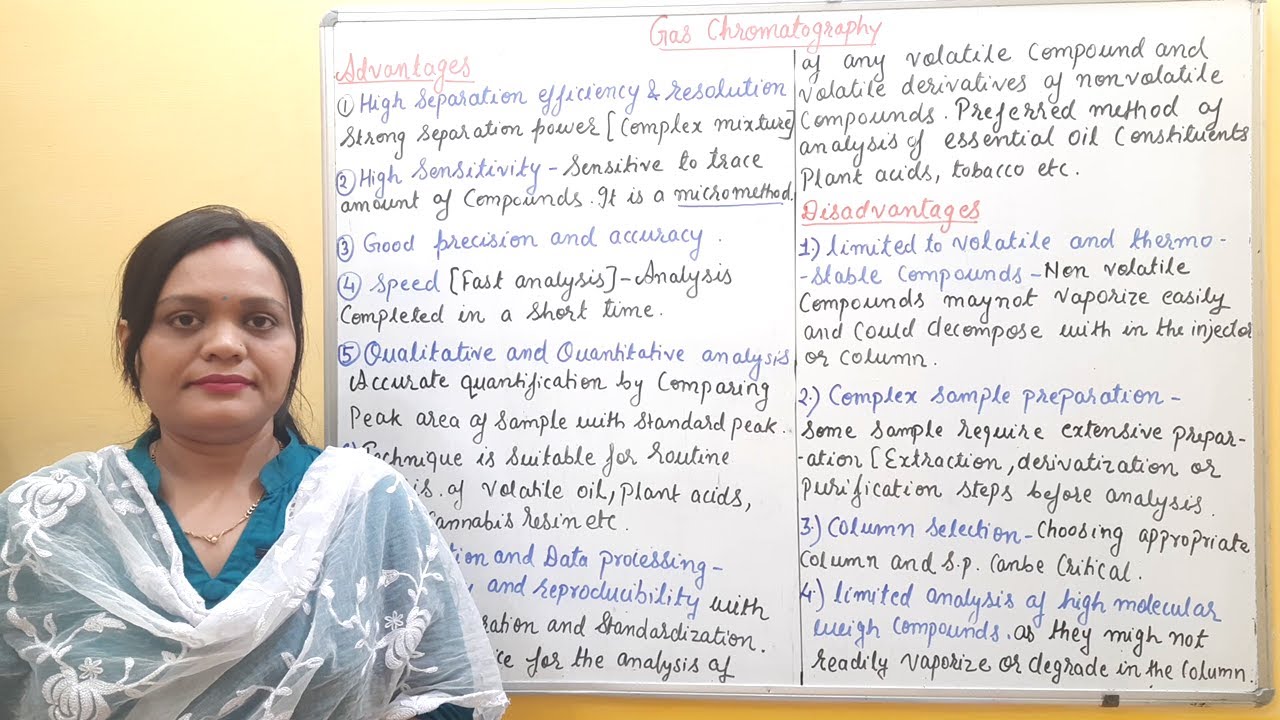 Gas Chromatography
Advantages
① High Separation efficiency & resolution
Strong separation power [Complex mixture]
② High Sensitivity - Sensitive to trace
amount of Compounds. It is a micromethod.
③ Good precision and accuracy.
④ Speed [Fast analysis] - Analysis
Completed in a Short time.
⑤ Qualitative and Quantitative analysis
Accurate quantification by Comparing
Peak area of Sample with Standard peak.
Technique is Suitable for routine
of Volatile oil, plant acids,
Cannabis resin etc.
and Data proiessing-
and reproducibility with
and Standardization.
for the analysis of
of any volatile Compound and
Volatile derivatives of nonvolatile
Compounds. Preferred method of
analysis of essential oil Constituents
Plant acids, tobacco etc.
Disadvantages
1.) limited to Volatile and thermo-
-Stable Compounds - Non volatile
Compounds maynot Vaporize easily
and Could decompose with in the injector
or Column.
2.) Complex Sample preparation -
Some Sample require extensive prepar-
-ation [Extraction, derivatization or
Purification steps before analysis.
3.) Column Selection - Choosing appropriate
Column and S.p. Canbe Critical.
4.) limited analysis of high molecular
weigh Compounds. as they migh not
readily vaporize or degrade in the Column.